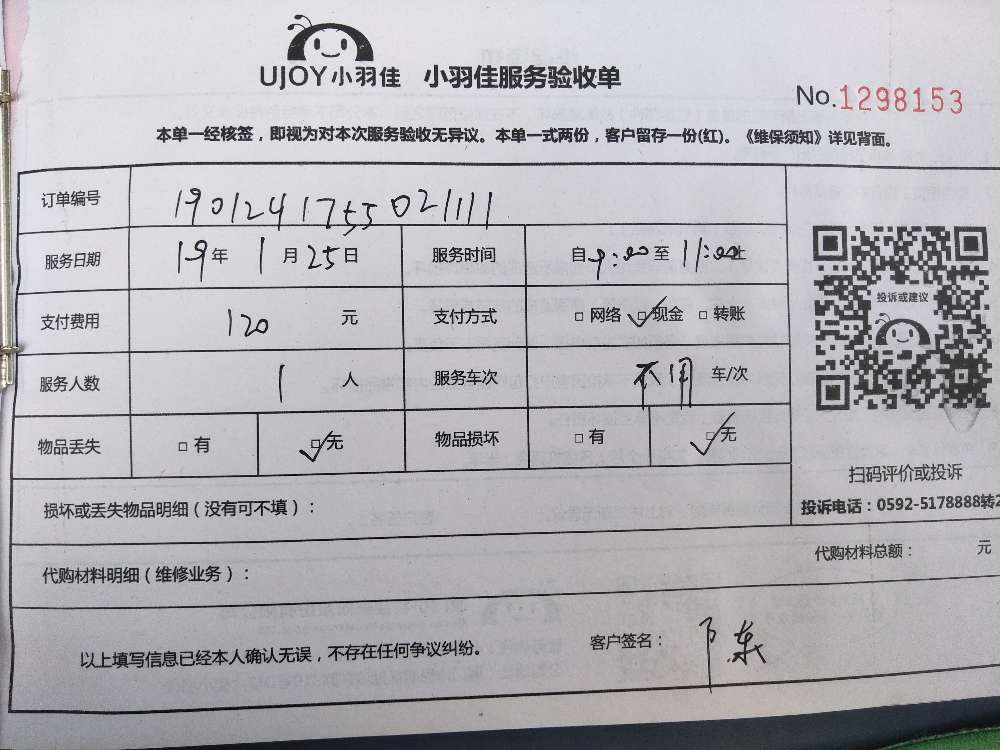 UJOY小羽佳 小羽佳服务验收单
No.1298153
本单一经核签，即视为对本次服务验收无异议。本单一式两份，客户留存一份(红)。《维保须知》详见背面。
订单编号 1901241755021111
服务日期 19年1月25日 服务时间 自9:00至11:00止
支付费用 120 元 支付方式 □网络 ☑现金 □转账
服务人数 1 人 服务车次 不用 车/次
物品丢失 □有 ☑无 物品损坏 □有 ☑无
投诉或建议
扫码评价或投诉
损坏或丢失物品明细（没有可不填）：
投诉电话：0592-5178888转2
代购材料明细（维修业务）：
代购材料总额： 元
以上填写信息已经本人确认无误，不存在任何争议纠纷。
客户签名：